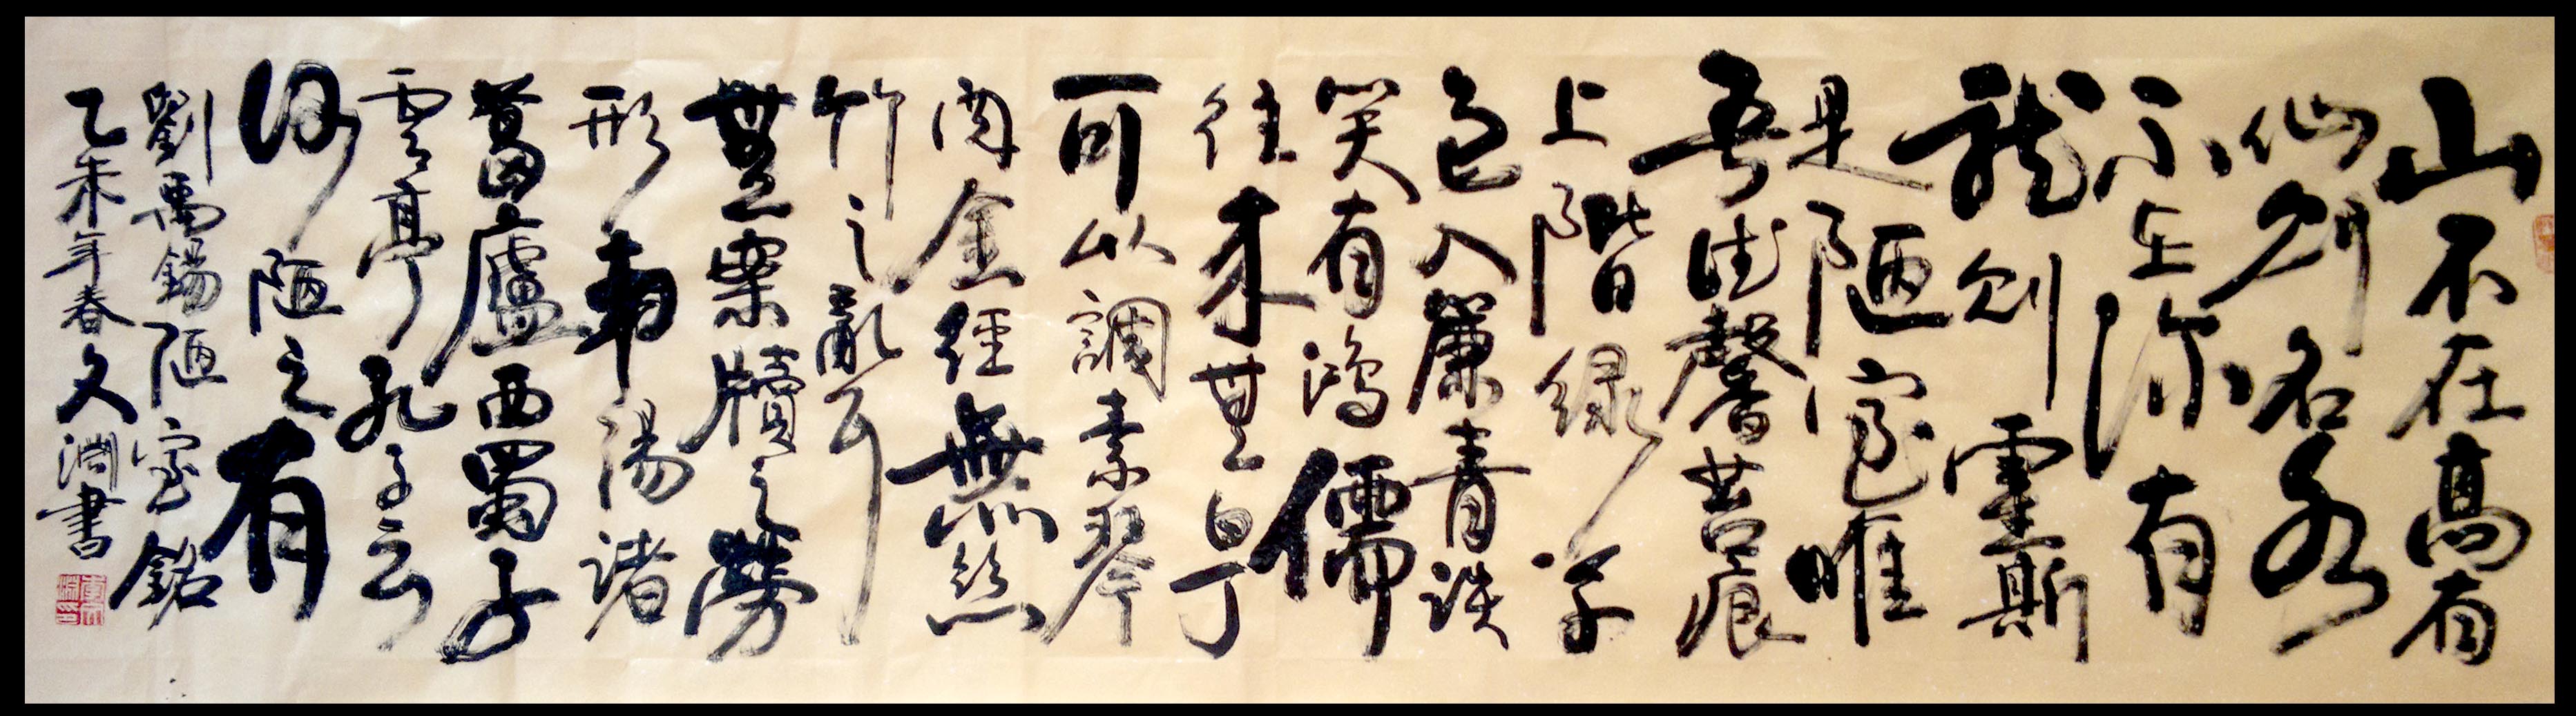 山不在高有
仙則名水
不在深有
龍則靈斯
是陋室唯
吾德馨苔痕
上階綠草
色入簾青談
笑有鴻儒
往來無白丁
可以調素琴
閱金經無絲
竹之亂耳
無案牘之勞
形南陽諸
葛廬西蜀子
雲亭孔子云
何陋之有
劉禹錫陋室銘
乙未年春文淵書